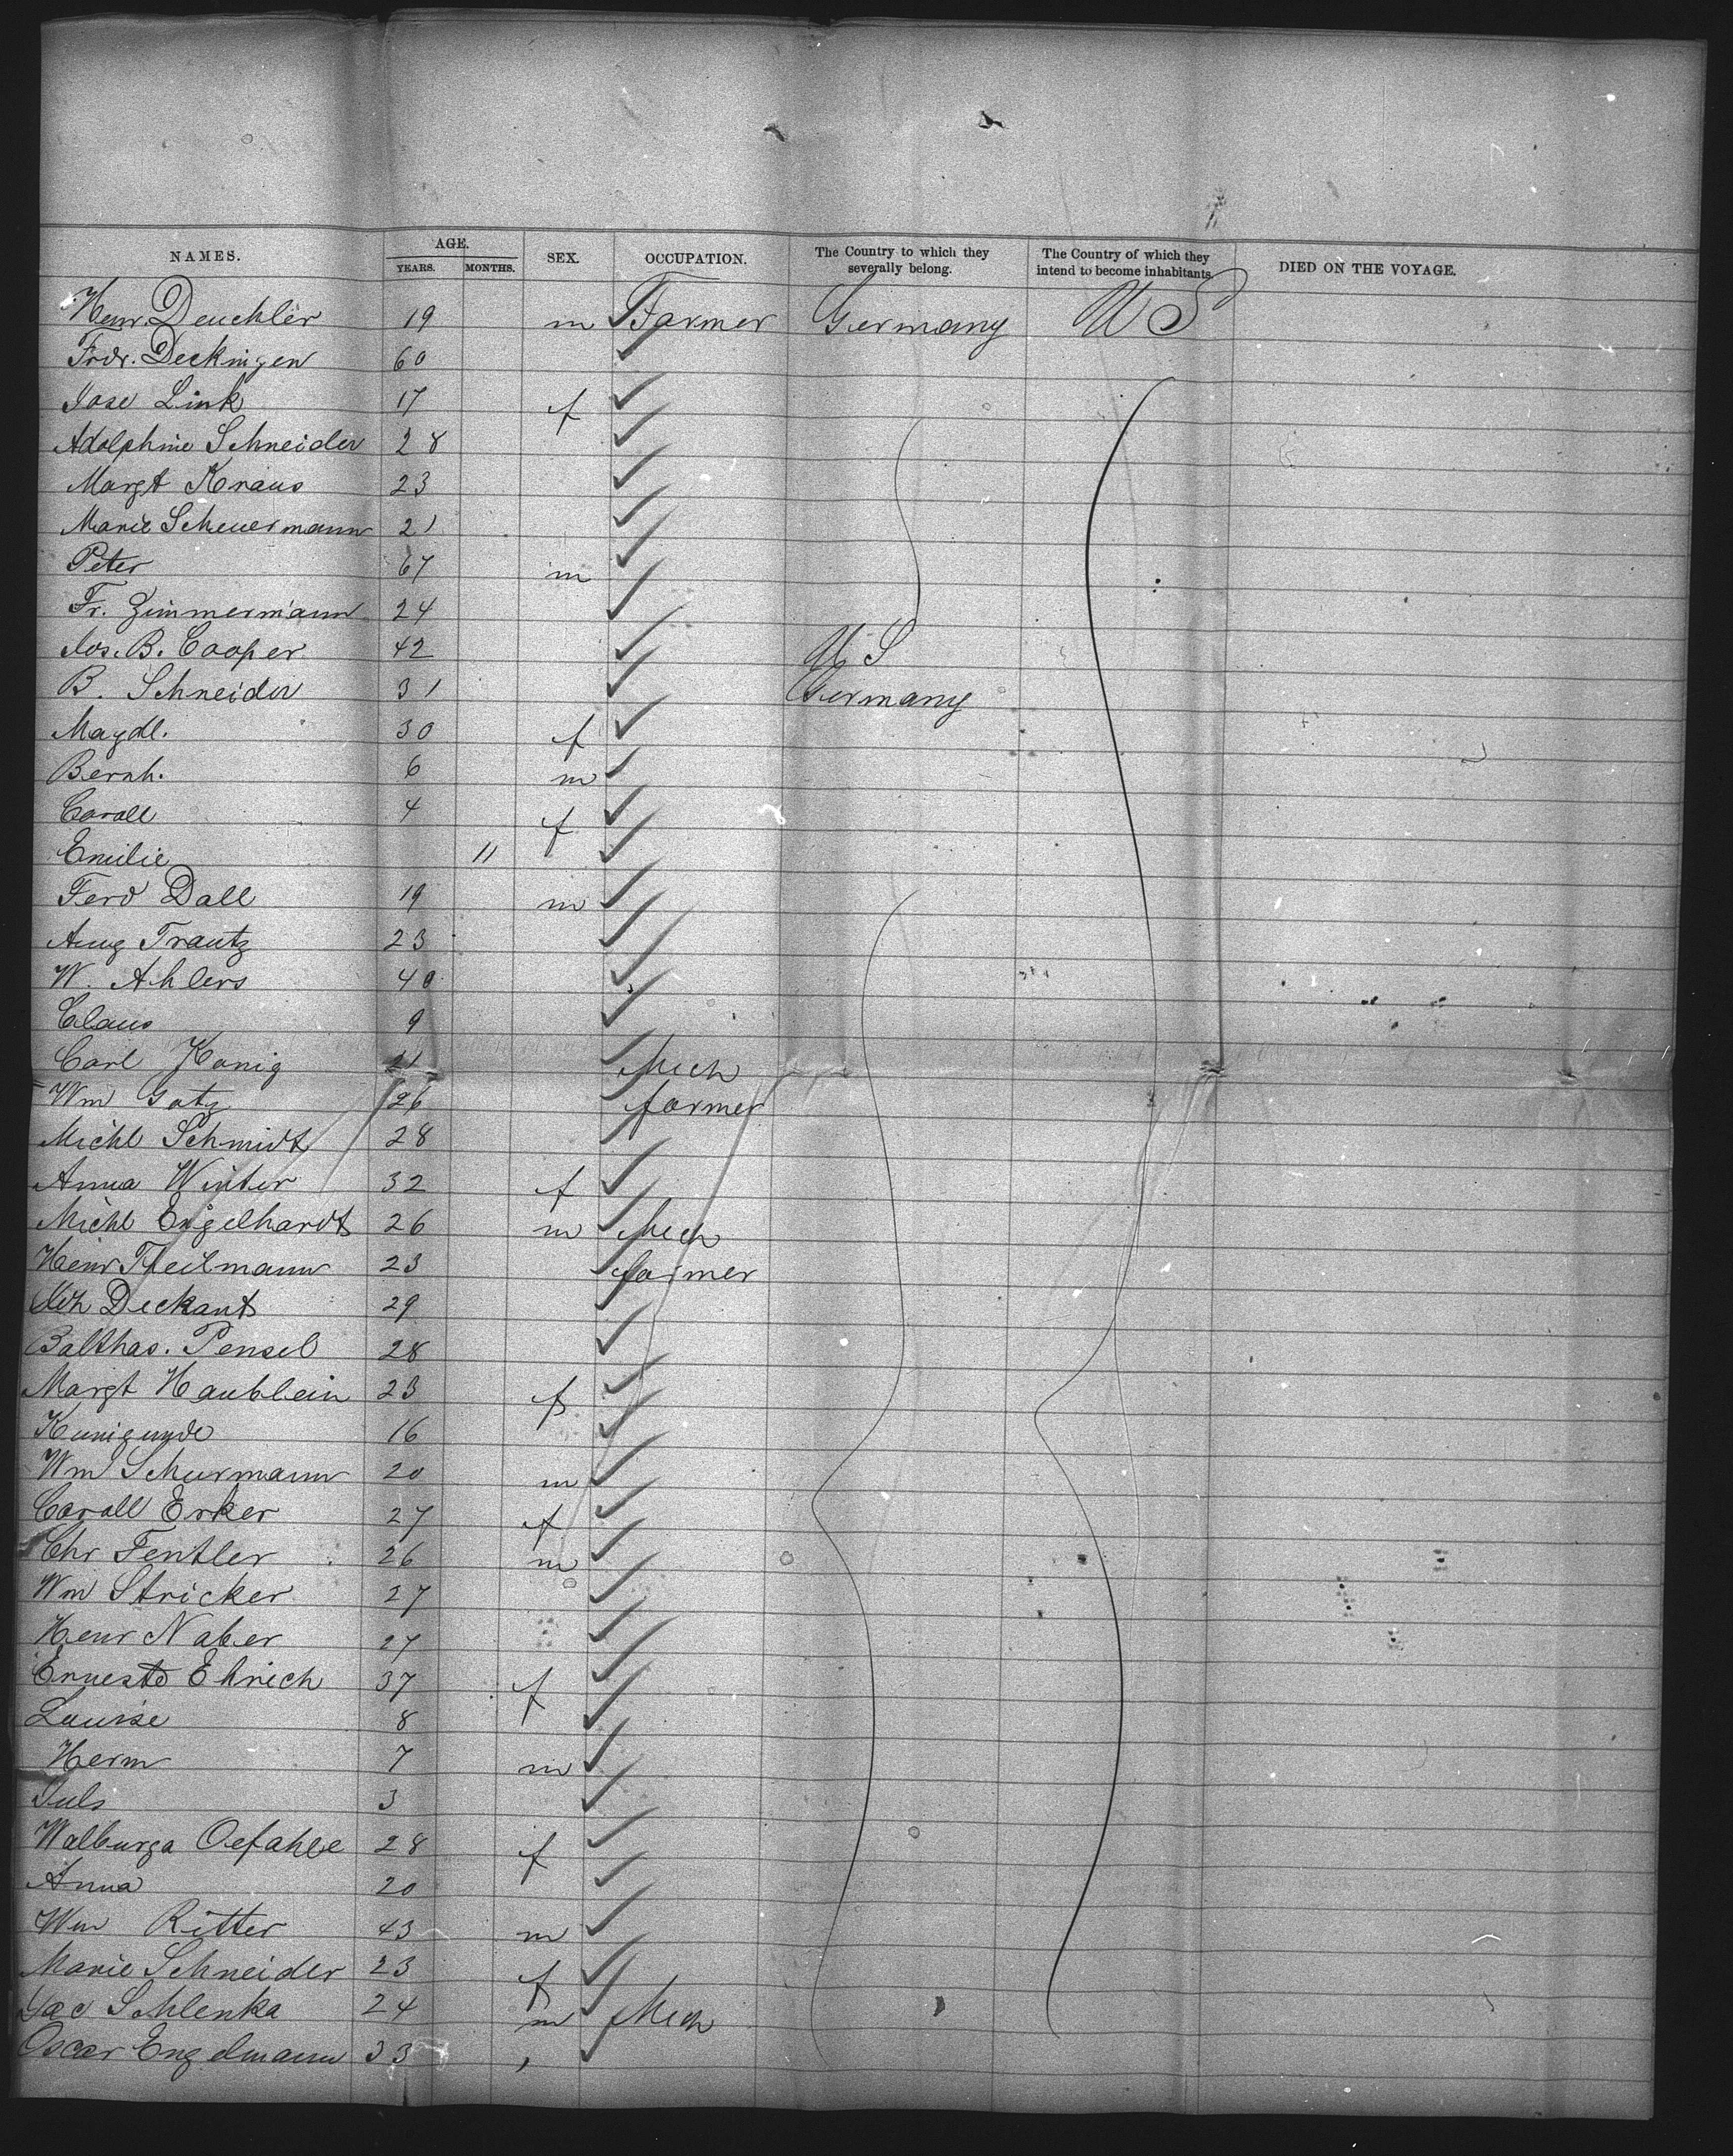 NAMES. AGE. YEARS. MONTHS. SEX. OCCUPATION. The Country to which they severally belong. The Country of which they intend to become inhabitants. DIED ON THE VOYAGE.
Henr. Deuchler 19 m Farmer Germany U S
Frdr. Deckingen 60
Jose Link 17 f
Adolphine Schneider 28
Margt Kraus 23
Marie Scheuermann 21
Peter 67 m
Fr. Zimmermann 24
Jos. B. Cooper 42 U S
B. Schneider 31 Germany
Magdl. 30 f
Bernh. 6 m
Caroll 4 f
Emilie 11
Ferd Dall 19 m
Aug Trautz 23
W. Ahlers 40
Claus 9
Carl Konig Mech
Wm Gotz 26 farmer
Michl Schmidt 28
Anna Winter 32 f
Michl Engelhardt 26 m Mech
Heinr Theilmann 23 farmer
Deckant 29
Balthas. Pensel 28
Margt Haublein 23 f
Kunigunde 16
Wm Schurmann 20 m
Caroll Erker 27 f
Chr Fentler 26 m
Wm Stricker 27
Henr Naber 27
Erneste Ehrich 37 f
Louise 8
Herm 7 m
Juls 3
Walburga Oefahle 28 f
Anna 20
Wm Ritter 43 m
Marie Schneider 23 f
Jac Schlenka 24 m Mech
Oscar Engelmann 33